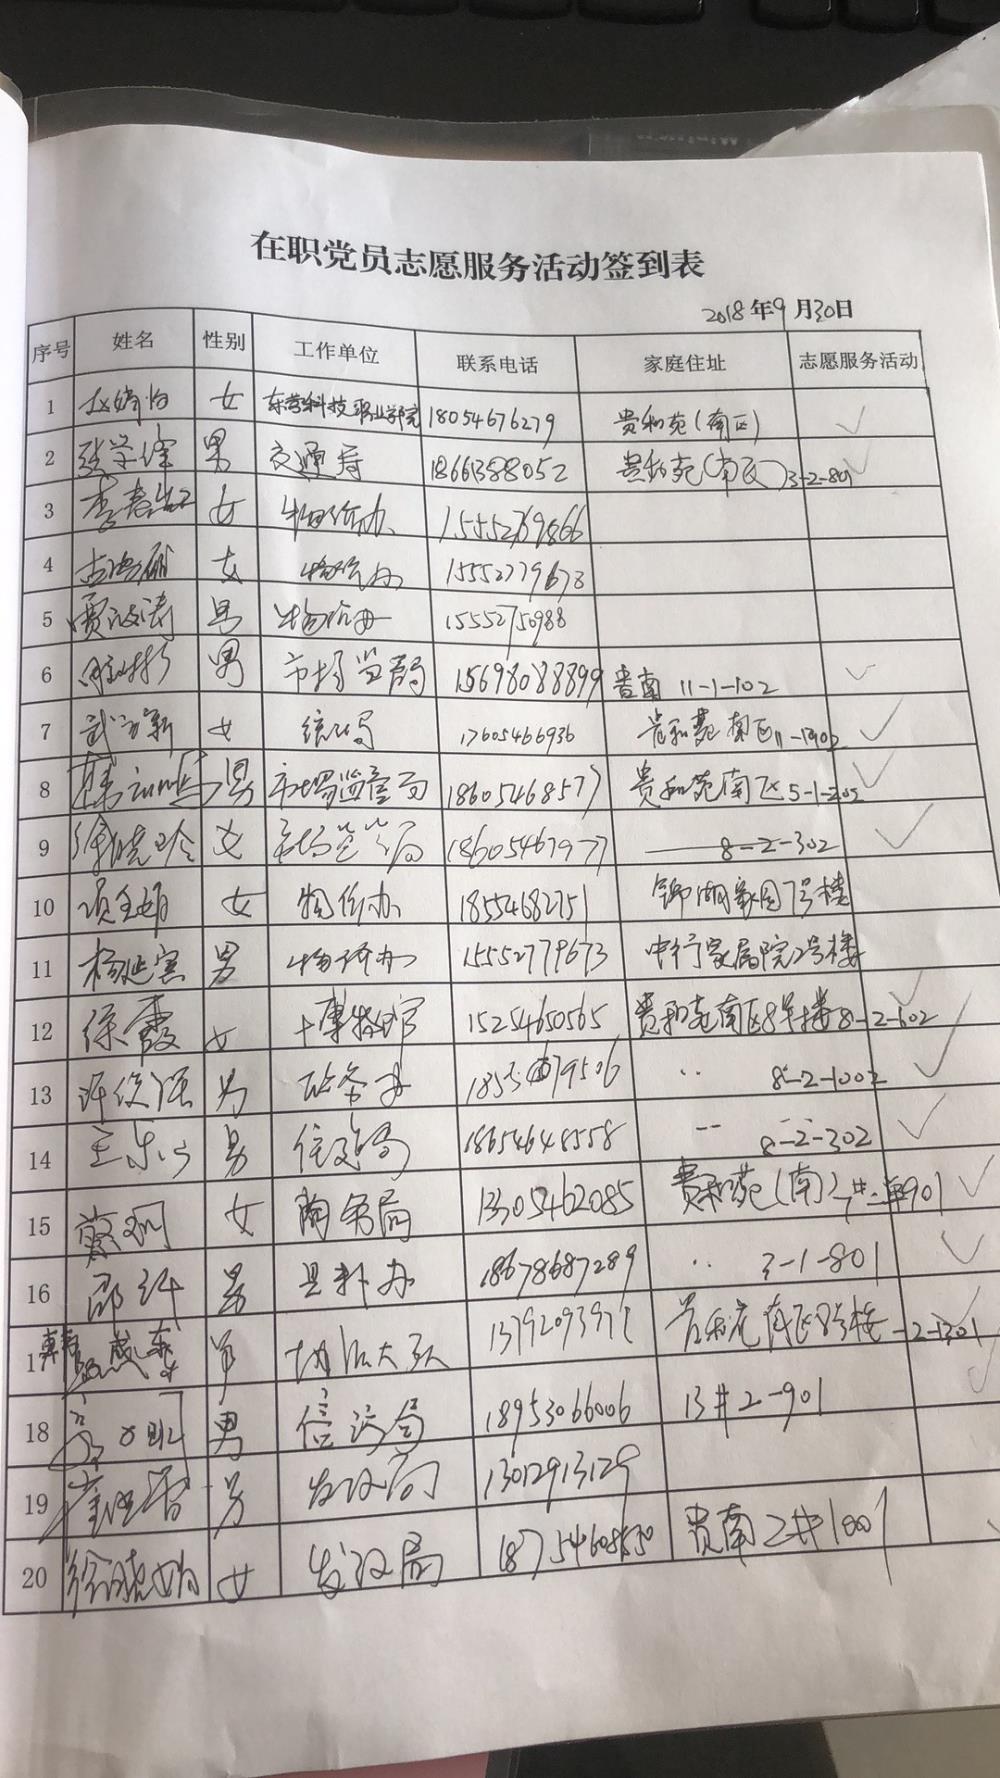 在职党员志愿服务活动签到表
2018年9月30日
序号 姓名 性别 工作单位 联系电话 家庭住址 志愿服务活动
1 女 东营科技职业学院 18054676279 贵和苑(南区) ✓
2 男 交通局 18661388052 贵和苑(南区)3-2-801 ✓
3 女 物价办 15552769866
4 女 物价办 15552779673
5 贾波涛 男 物价办 15552750988
6 男 市场监管局 15698088899 贵南 11-1-102 ✓
7 武方新 女 统计局 17605466936 贵和苑南区11-1302 ✓
8 男 市场监管局 18605468577 贵和苑南区5-1-202 ✓
9 徐晓玲 女 市场监管局 18605467977 8-2-302 ✓
10 女 物价办 18554682751 锦湖家园7号楼
11 杨延宾 男 物价办 15552779673 中行家属院2号楼
12 徐霞 女 博物馆 15254650565 贵和苑南区8号楼8-2-602 ✓
13 许俊强 男 政务办 〃 8-2-1002 ✓
14 王东 男 住建局 18654648558 〃 8-2-302 ✓
15 女 商务局 13305462085 贵和苑(南) 901 ✓
16 邵 男 18678687289 〃 3-1-801 ✓
17 男 大队 贵和苑南区8号楼-2-1301 ✓
18 男 信访局 18953066006 13#2-901 ✓
19 男 发改局 13012913129
20 徐晓娟 女 发改局 贵南2#1001 ✓